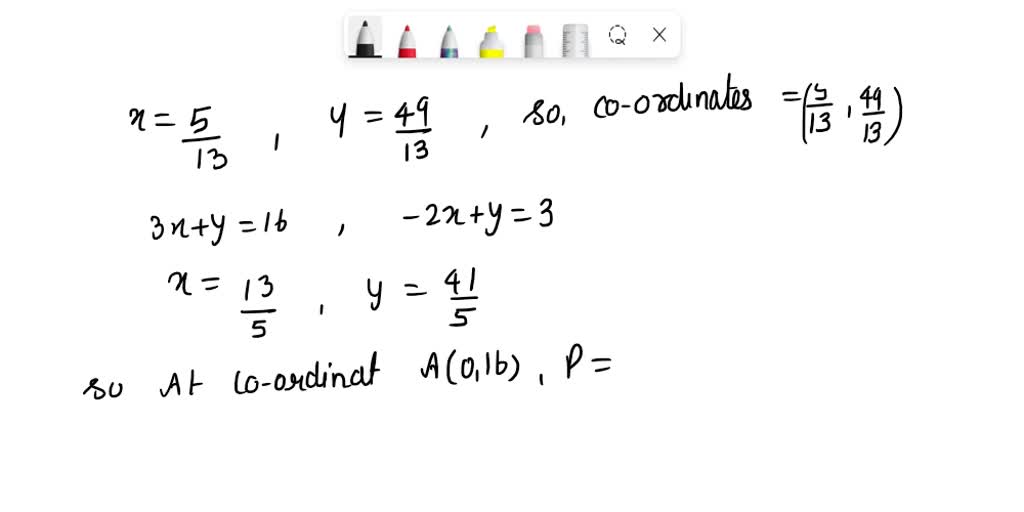 x = 5/13 , y = 49/13 , so, co-ordinates = (5/13 , 49/13)
3x+y = 16 , -2x+y = 3
x = 13/5 , y = 41/5
so At co-ordinat A(0,16) , P =